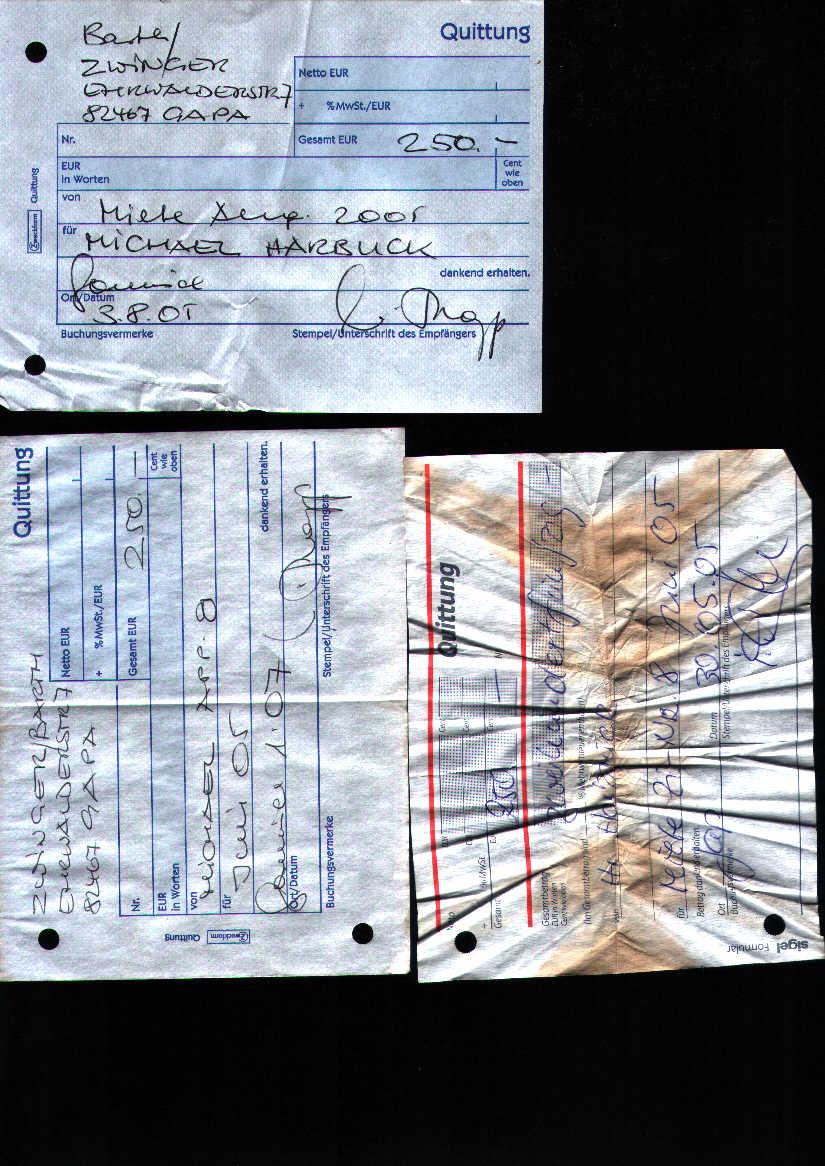 Quittung
ZWINGER
EHRWALDERSTR 7
82467 GAPA
Netto EUR
+ % MwSt./EUR
Nr.
Gesamt EUR 250.–
EUR
in Worten
Cent
wie
oben
von
Miete Aug. 2005
für
MICHAEL HARBUCK
dankend erhalten.
Ort/Datum
3.8.05
Buchungsvermerke
Stempel/Unterschrift des Empfängers
Zweckform Quittung
Quittung
ZWINGER/BARTH
EHRWALDERSTR 7
82467 GAPA
Netto EUR
+ % MwSt./EUR
Nr.
Gesamt EUR 250.–
EUR
in Worten
Cent
wie
oben
von
MICHAEL APP. 8
für
Juni 05
dankend erhalten.
1.07
Ort/Datum
Buchungsvermerke
Stempel/Unterschrift des Empfängers
Zweckform Quittung
Quittung
+ % MwSt.
Gesamt 250 –
Gesamtbetrag
EUR in Worten
Cent wie oben
Zweihundertfünfzig –
von
für
Miete No. 8 Juni 05
Betrag dankend erhalten
Ort
Datum 30.05.05
Stempel/Unterschrift des Empfängers
sigel Formular